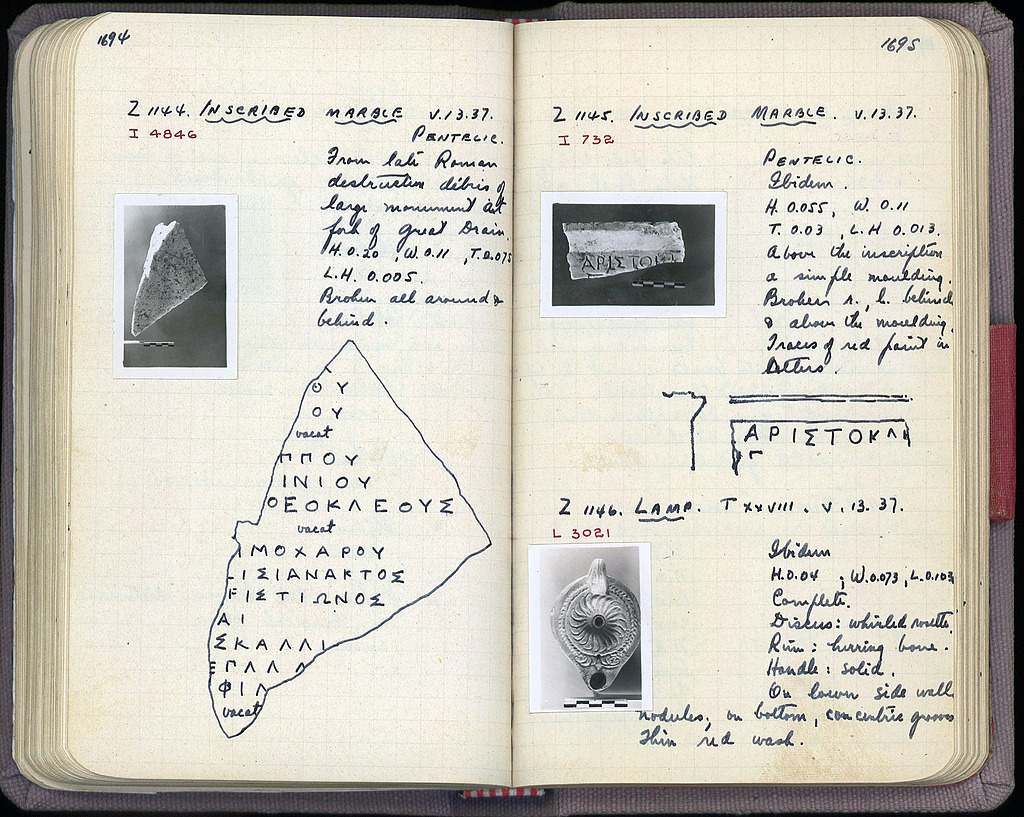 1694
Z 1144. INSCRIBED MARBLE V.13.37.
I 4846
PENTELIC.
From late Roman
destruction débris of
large monument at
fork of Great Drain.
H. 0.20 , W. 0.11 , T. 0.075
L.H. 0.005.
Broken all around &
behind.
ΟΥ
ΟΥ
vacat
ΠΠΟΥ
ΙΝΙΟΥ
ΘΕΟΚΛΕΟΥΣ
vacat
ΙΜΟΧΑΡΟΥ
ΙΣΙΑΝΑΚΤΟΣ
ΙΣΤΙΩΝΟΣ
ΑΙ
ΣΚΑΛΛΙ
ΦΙΛ
vacat
1695
Z 1145. INSCRIBED MARBLE. V.13.37.
I 732
PENTELIC.
Ibidem.
H. 0.055, W. 0.11
T. 0.03 , L.H 0.013.
Above the inscription
a simple moulding.
Broken r., l. behind
& above the moulding.
Traces of red paint in
letters.
ΑΡΙΣΤΟΚ
ΑΡΙΣΤΟΚΛΙ
Γ
Z 1146. LAMP. T XXVIII. V.13.37.
L 3021
Ibidem
H. 0.04 , W. 0.073, L. 0.103
Complete.
Discus: whirled rosette.
Rim: herring bone.
Handle: solid.
On lower side wall
nodules; on bottom, concentric grooves
Thin red wash.